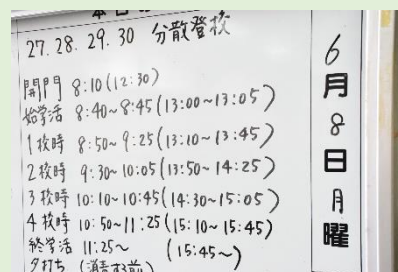 27.28.29.30 分散登校
開門 8:10(12:30)
始学活 8:40~8:45(13:00~13:05)
1校時 8:50~9:25(13:10~13:45)
2校時 9:30~10:05(13:50~14:25)
3校時 10:10~10:45(14:30~15:05)
4校時 10:50~11:25(15:10~15:45)
終学活 11:25~ (15:45~)
6月8日月曜